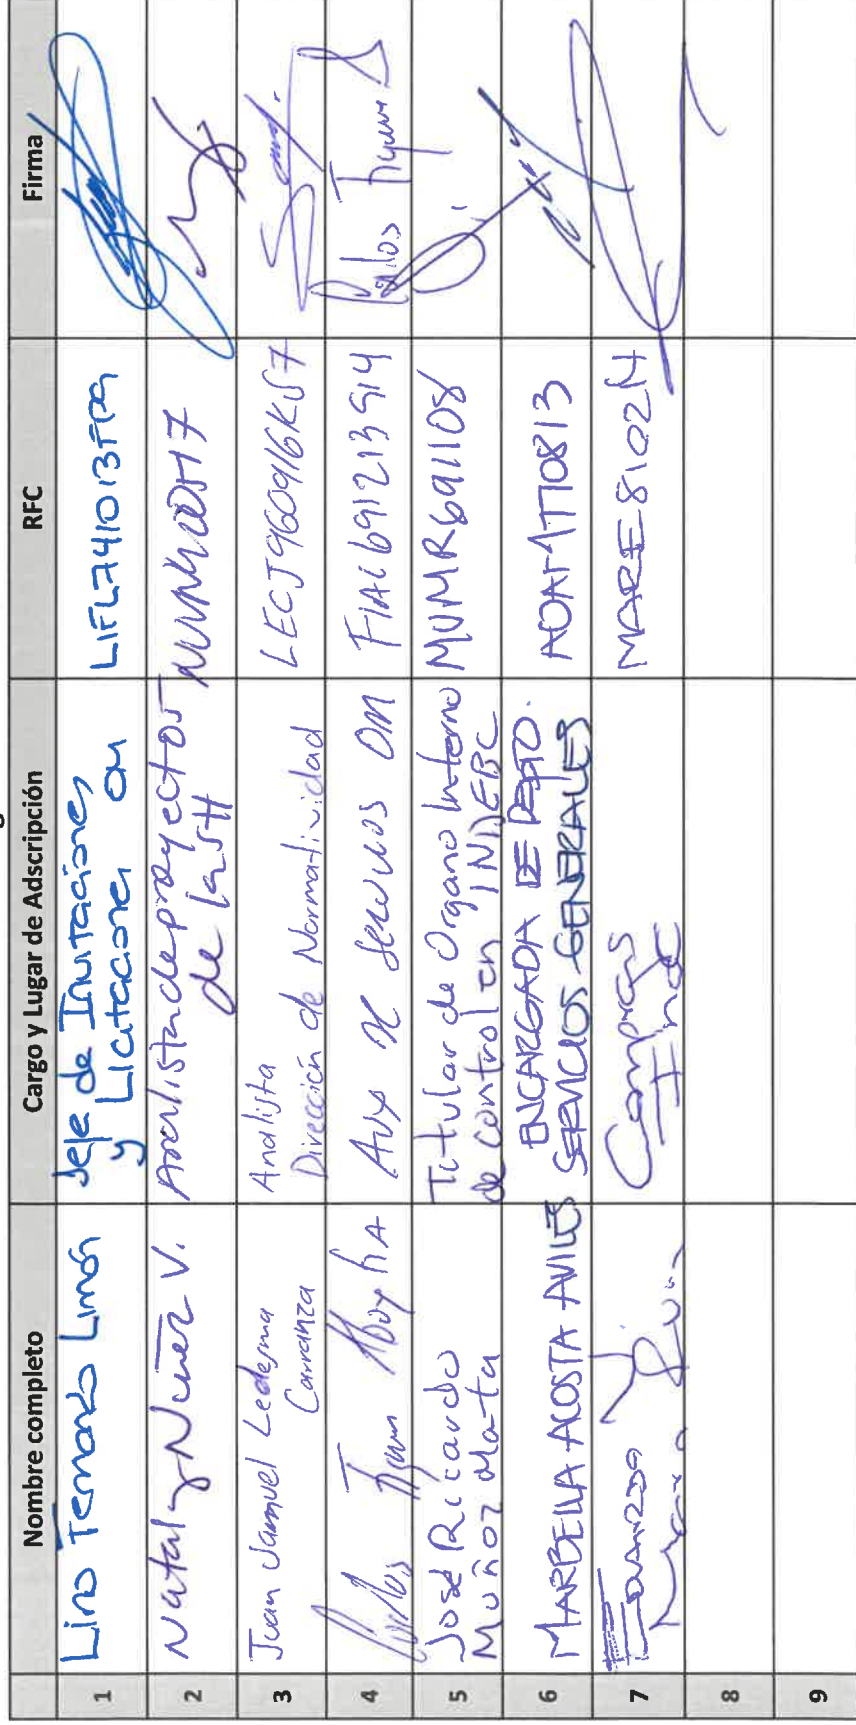 Nombre completo Cargo y Lugar de Adscripción RFC Firma
1 Lino Fernando Limón Jefe de Invitaciones y Licitaciones OM LIFL741013FP9
2 Nataly Nuñez V. Analista de proyectos de la SH
3 Juan Samuel Ledesma Carranza Analista Dirección de Normatividad LECJ960916KS7 Sam.
4 Carlos Aux de Servicios OM FIAC691213914 Carlos
5 José Ricardo Muñoz Mata Titular de Organo Interno de control en INDEBC MUMR691108
6 MARBELLA ACOSTA AVILES ENCARGADA DE DEPTO. SERVICIOS GENERALES AOAM770813
7 Eduardo Compras Inde MARE8102
8
9